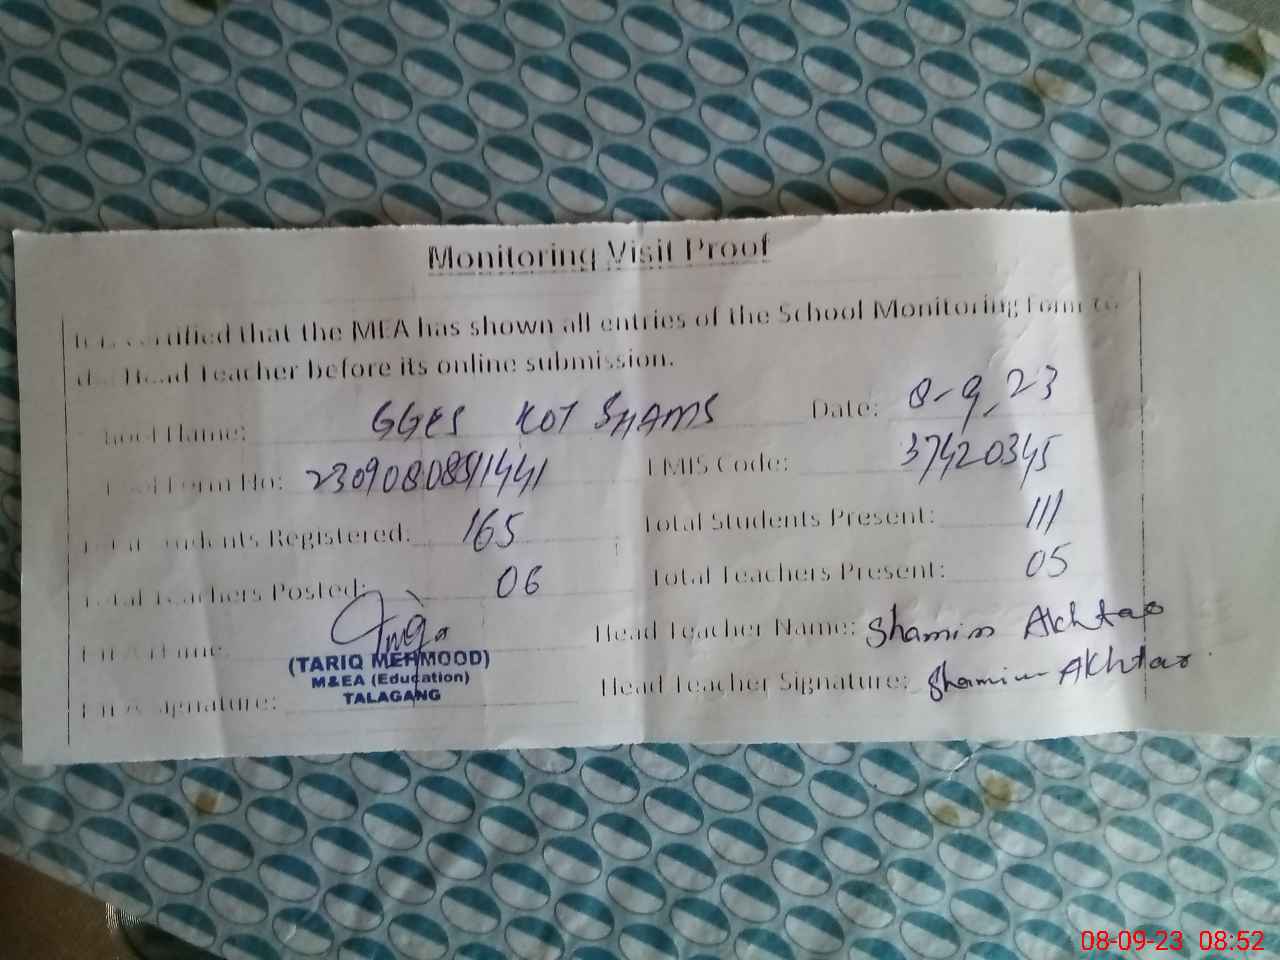 Monitoring Visit Proof
It is certified that the MEA has shown all entries of the School Monitoring Form to
the Head Teacher before its online submission.
School Name: GGES KOT SHAMS Date: 8-9-23
Form No: EMIS Code: 37420345
Total Students Registered: 165 Total Students Present: 111
Total Teachers Posted: 06 Total Teachers Present: 05
MEA Name: Head Teacher Name: Shamim Akhtar
(TARIQ MEHMOOD)
M&EA (Education)
TALAGANG
MEA Signature: Head Teacher Signature: Shamim Akhtar
08-09-23 08:52